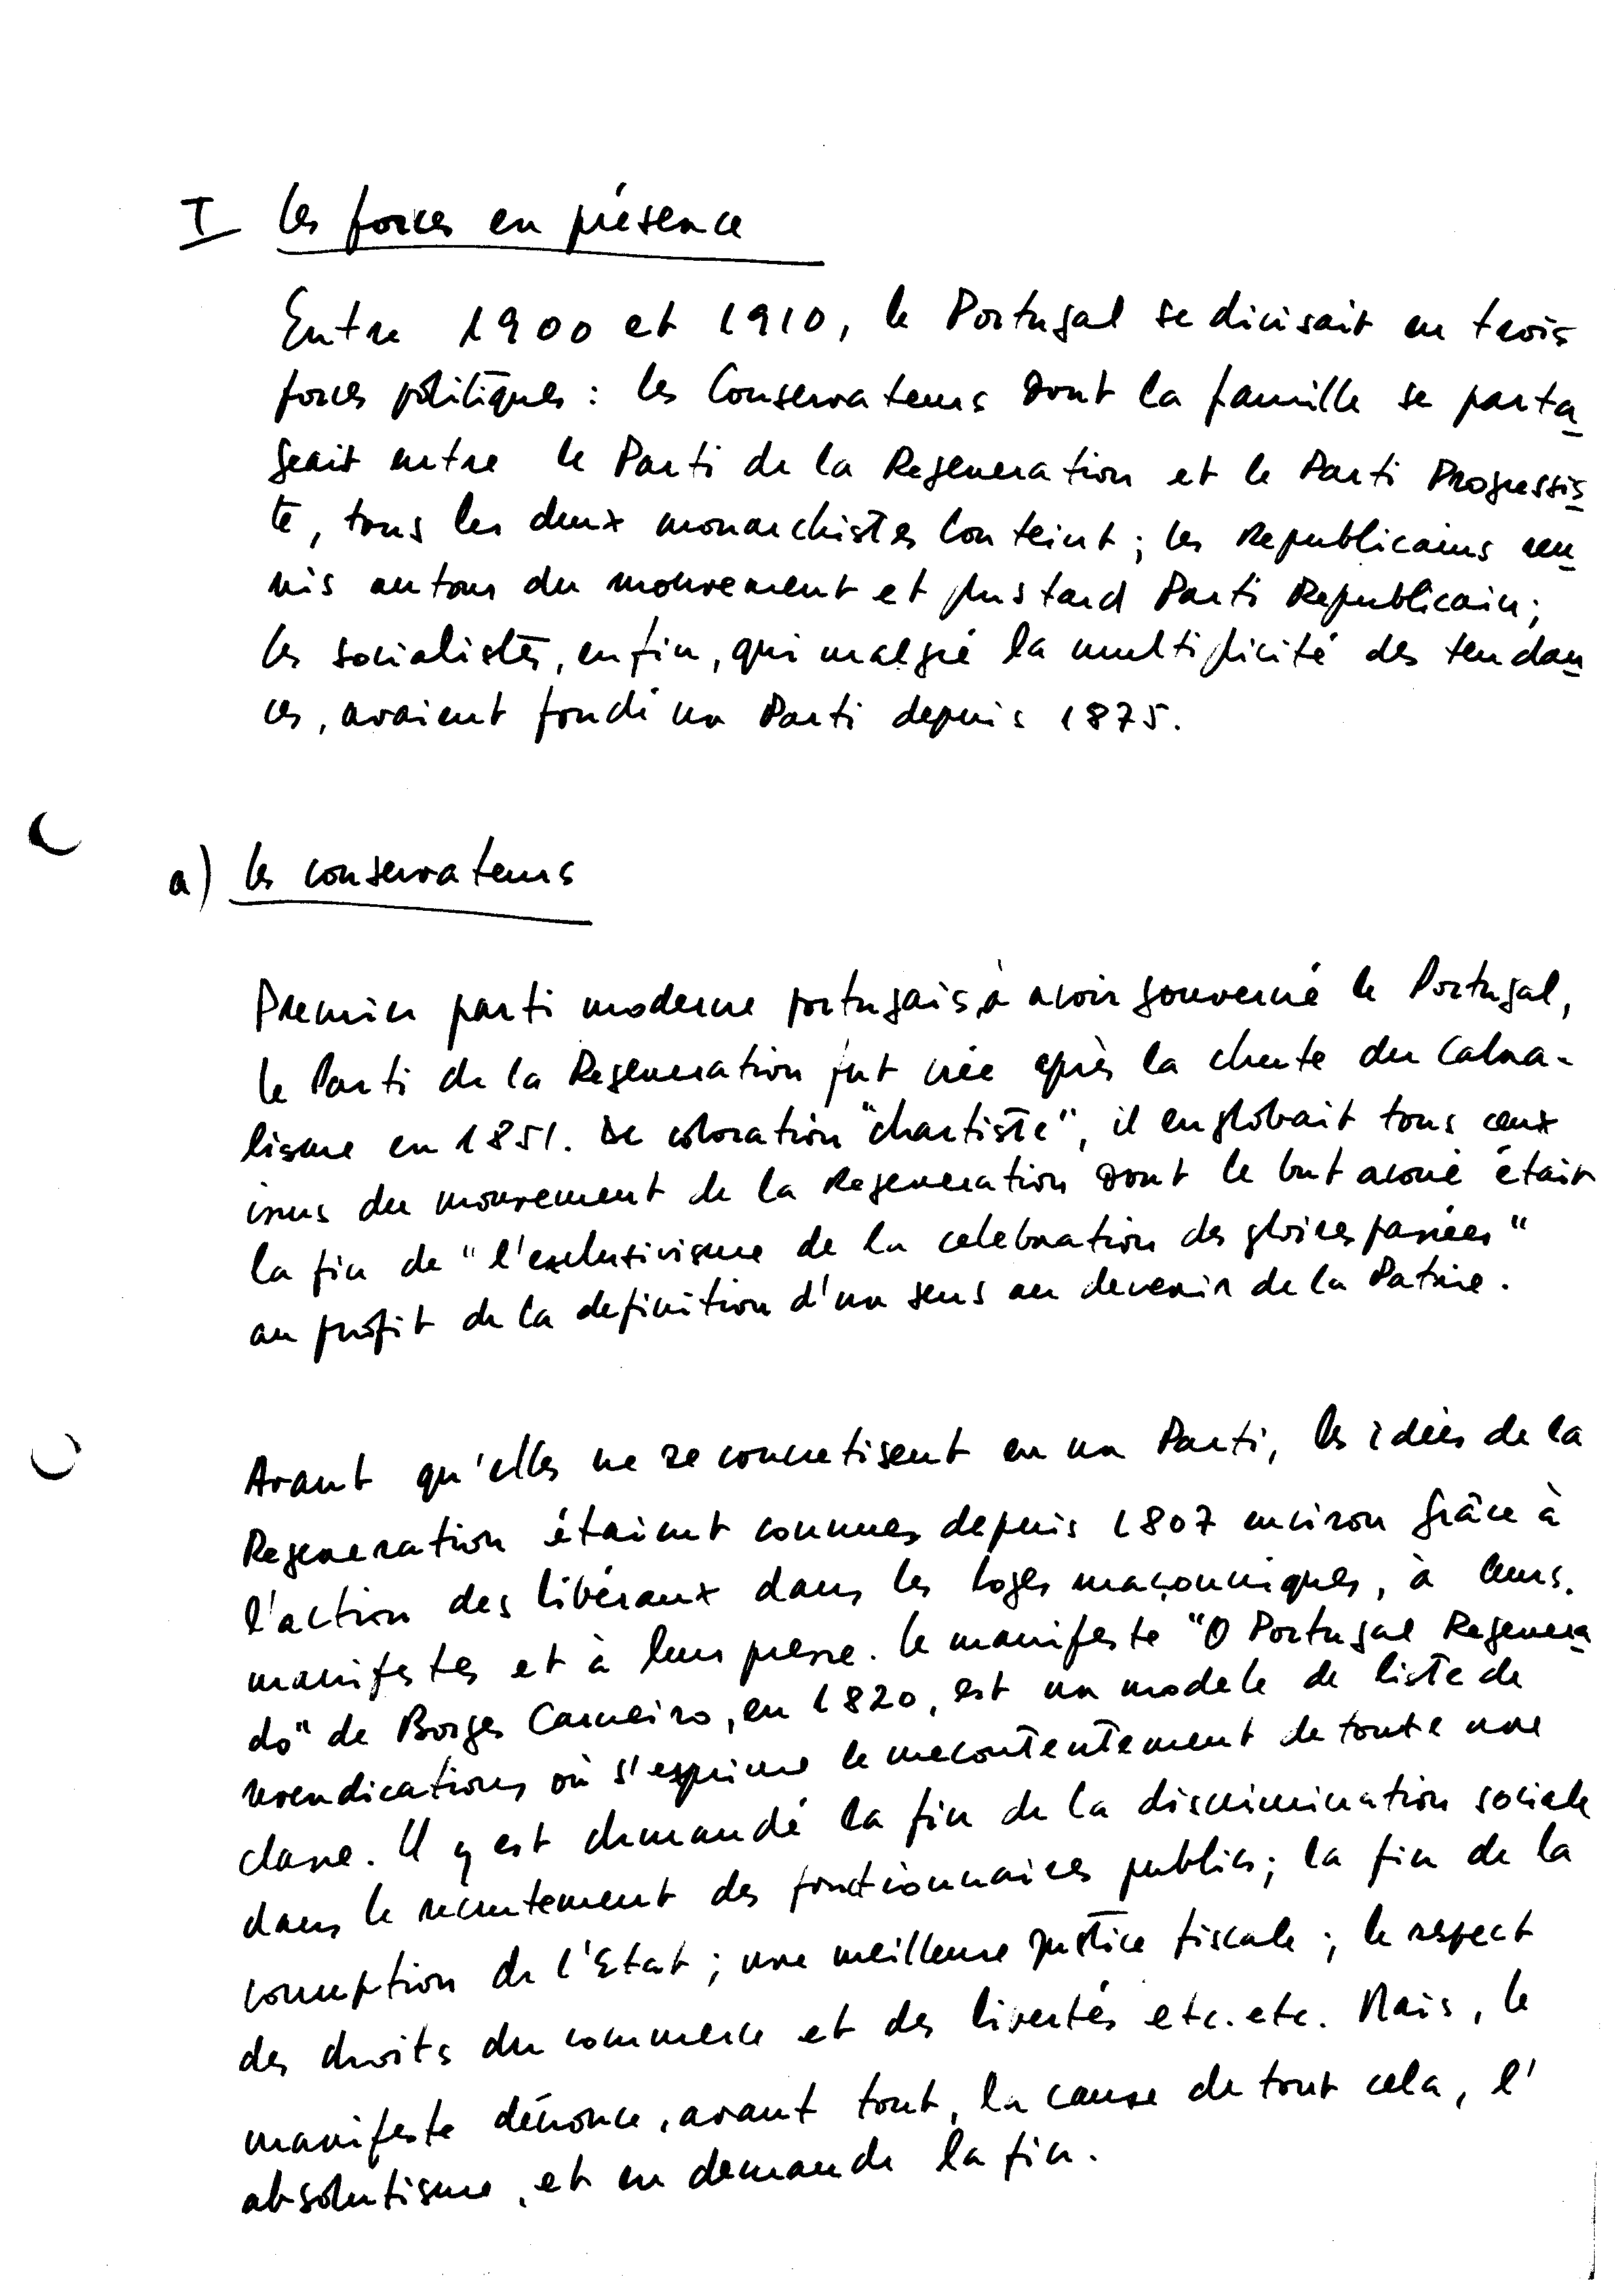 I Les forces en présence
Entre 1900 et 1910, le Portugal se divisait en trois
forces politiques : les Conservateurs dont la famille se parta-
geait entre le Parti de la Regeneration et le Parti Progressis-
te, tous les deux monarchistes bon teint ; les Republicains reu-
nis autour du mouvement et plus tard Parti Republicain ;
les socialistes, enfin, qui malgré la multiplicité des tendan-
ces, avaient fondé un Parti depuis 1875.
a) les conservateurs
Premier parti moderne portugais à avoir gouverné le Portugal,
le Parti de la Regeneration fut crée après la chute du Cabra-
lisme en 1851. De coloration "chartiste", il englobait tous ceux
issus du mouvement de la Regeneration dont le but avoué était
la fin de "l'exclusivisme de la celebration des gloires passées"
au profit de la definition d'un sens au devenir de la Patrie.
Avant qu'elles ne se concretisent en un Parti, les idées de la
Regeneration étaient connues depuis 1807 environ grâce à
l'action des libéraux dans les loges maçonniques, à leurs
manifestes et à leur presse. Le manifeste "O Portugal Regenera
do" de Borges Carneiro, en 1820, est un modele de liste de
revendications où s'exprime le mecontentement de toute une
classe. Il y est demandé la fin de la discrimination sociale
dans le recrutement des fonctionnaires publics ; la fin de la
corruption de l'Etat ; une meilleure justice fiscale ; le respect
des droits du commerce et des libertés etc. etc. Mais, le
manifeste dénonce, avant tout, la cause de tout cela, l'
absolutisme, et en demande la fin.